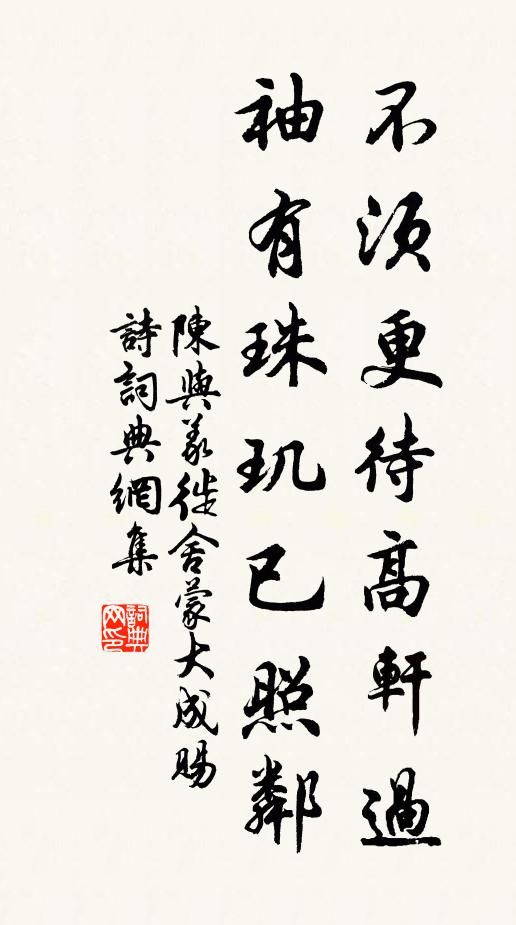 不須更待高軒過
袖有珠玑已照鄰
陳與義徙舍蒙大成賜
詩詞典網集
詞典
网印